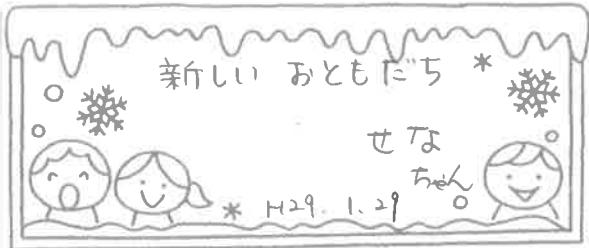 新しい おともだち
せな
ちゃん
H29.1.29